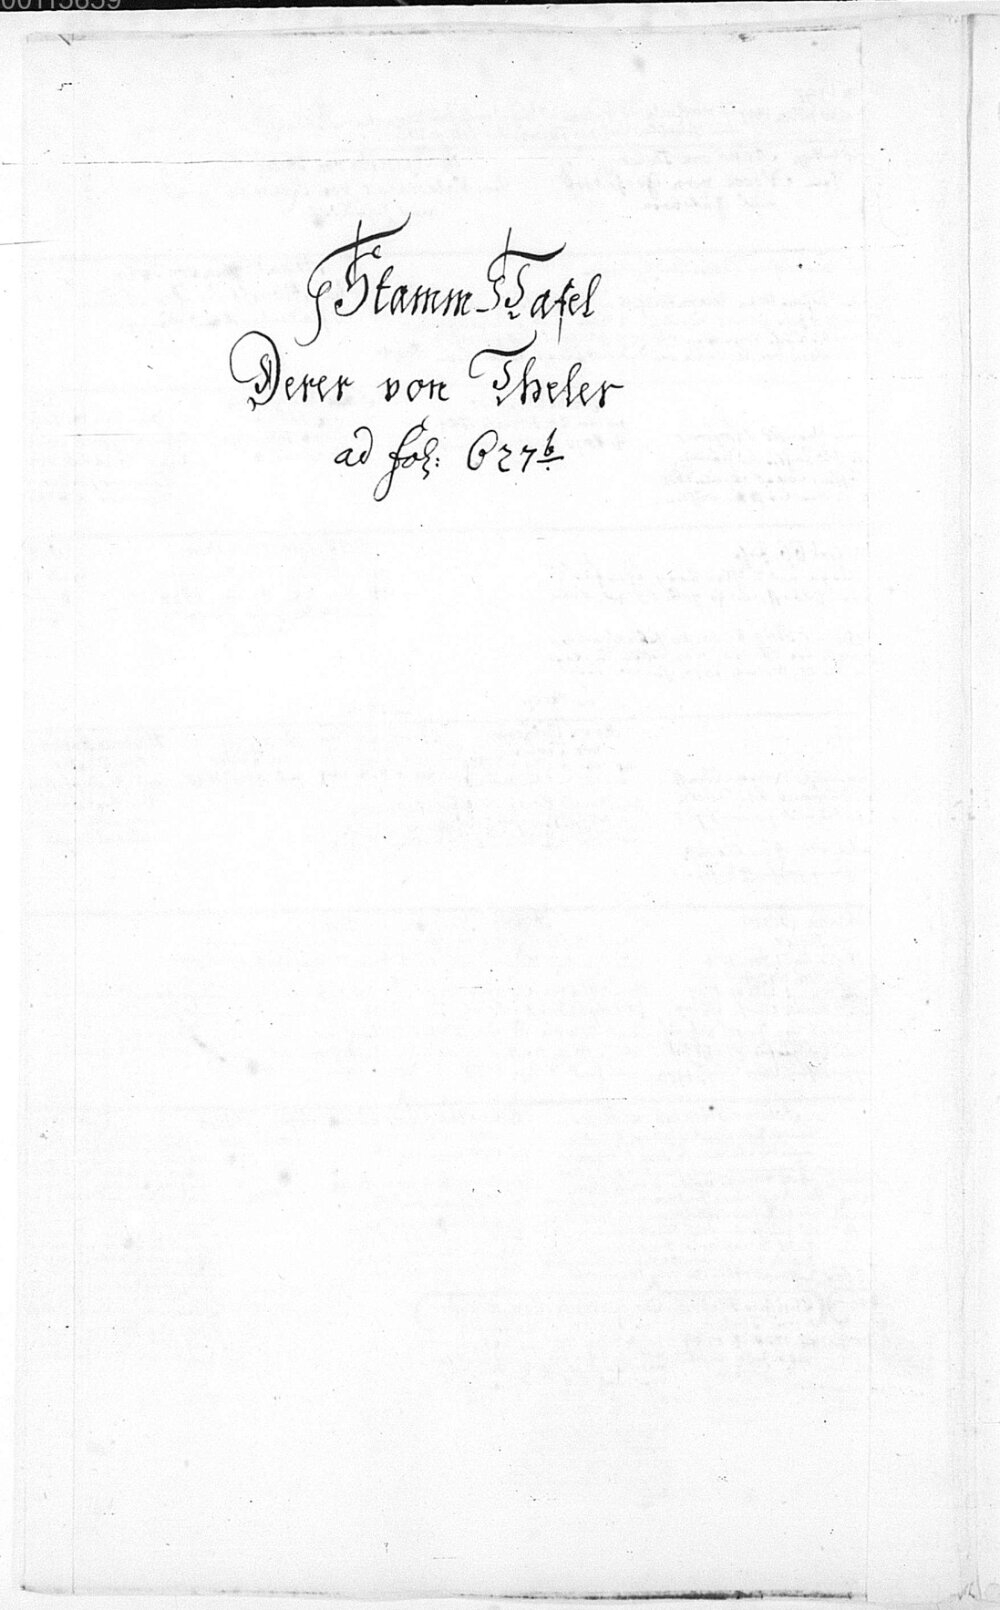 00115659
Stamm-Tafel
Derer von Theler
ad fol: 627b